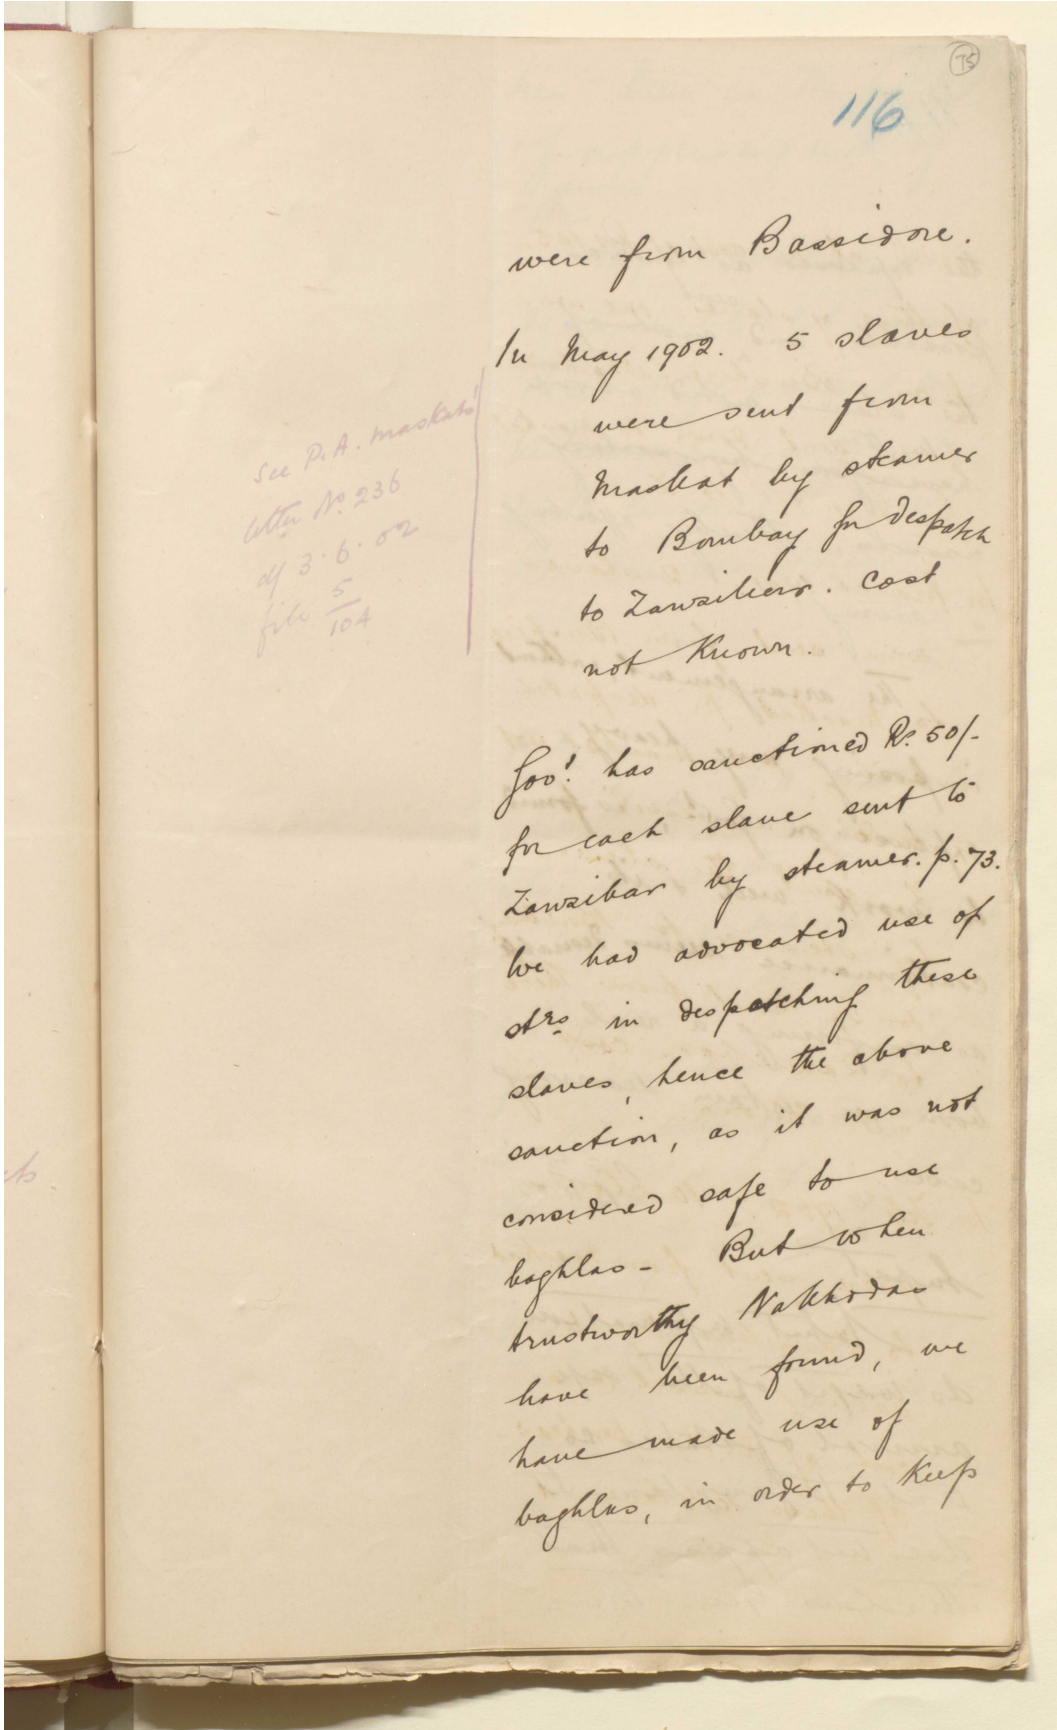 75
116
were from Bassidore.
In May 1902. 5 slaves
were sent from
Maskat by steamer
to Bombay for despatch
to Zanzibar. Cost
not Known.
See P.A. Maskat's
letter No. 236
of 3.6.02
file 5/104
Govt. has sanctioned Rs. 50/-
for each slave sent to
Zanzibar by steamer. p. 73.
We had advocated use of
strs in despatching these
slaves, hence the above
sanction, as it was not
considered safe to use
baghlas - But when
trustworthy Nakhodas
have been found, we
have made use of
baghlas, in order to Keep